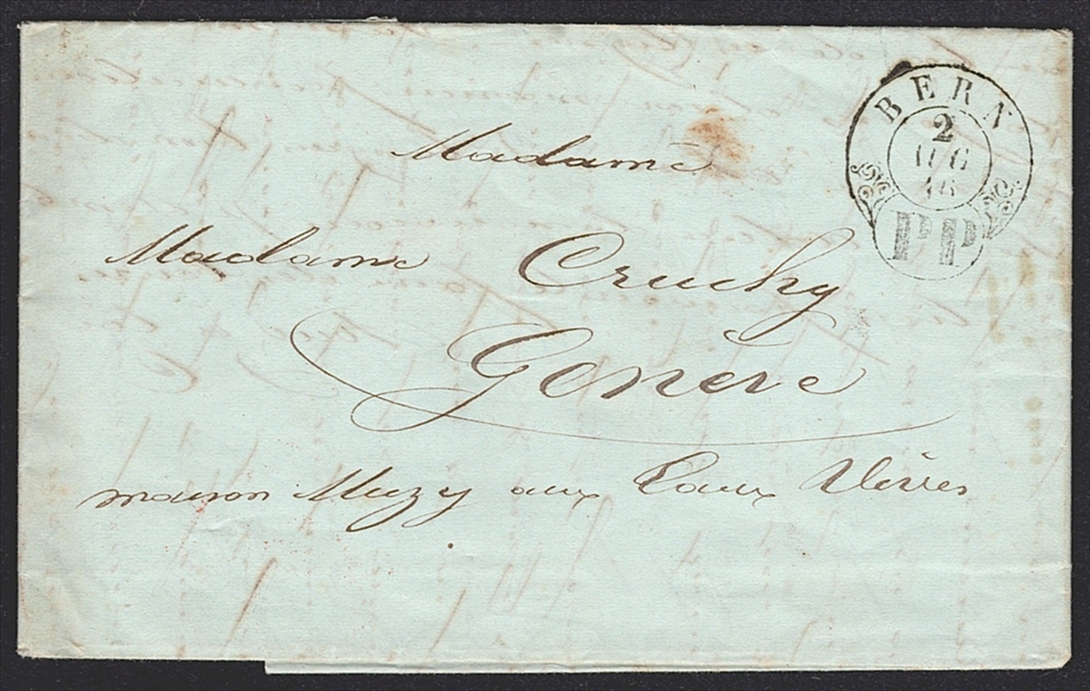 BERN
2
AUG
46
PP
Madame
Madame Cruchy
Genève
maison Muzy aux Eaux Vives